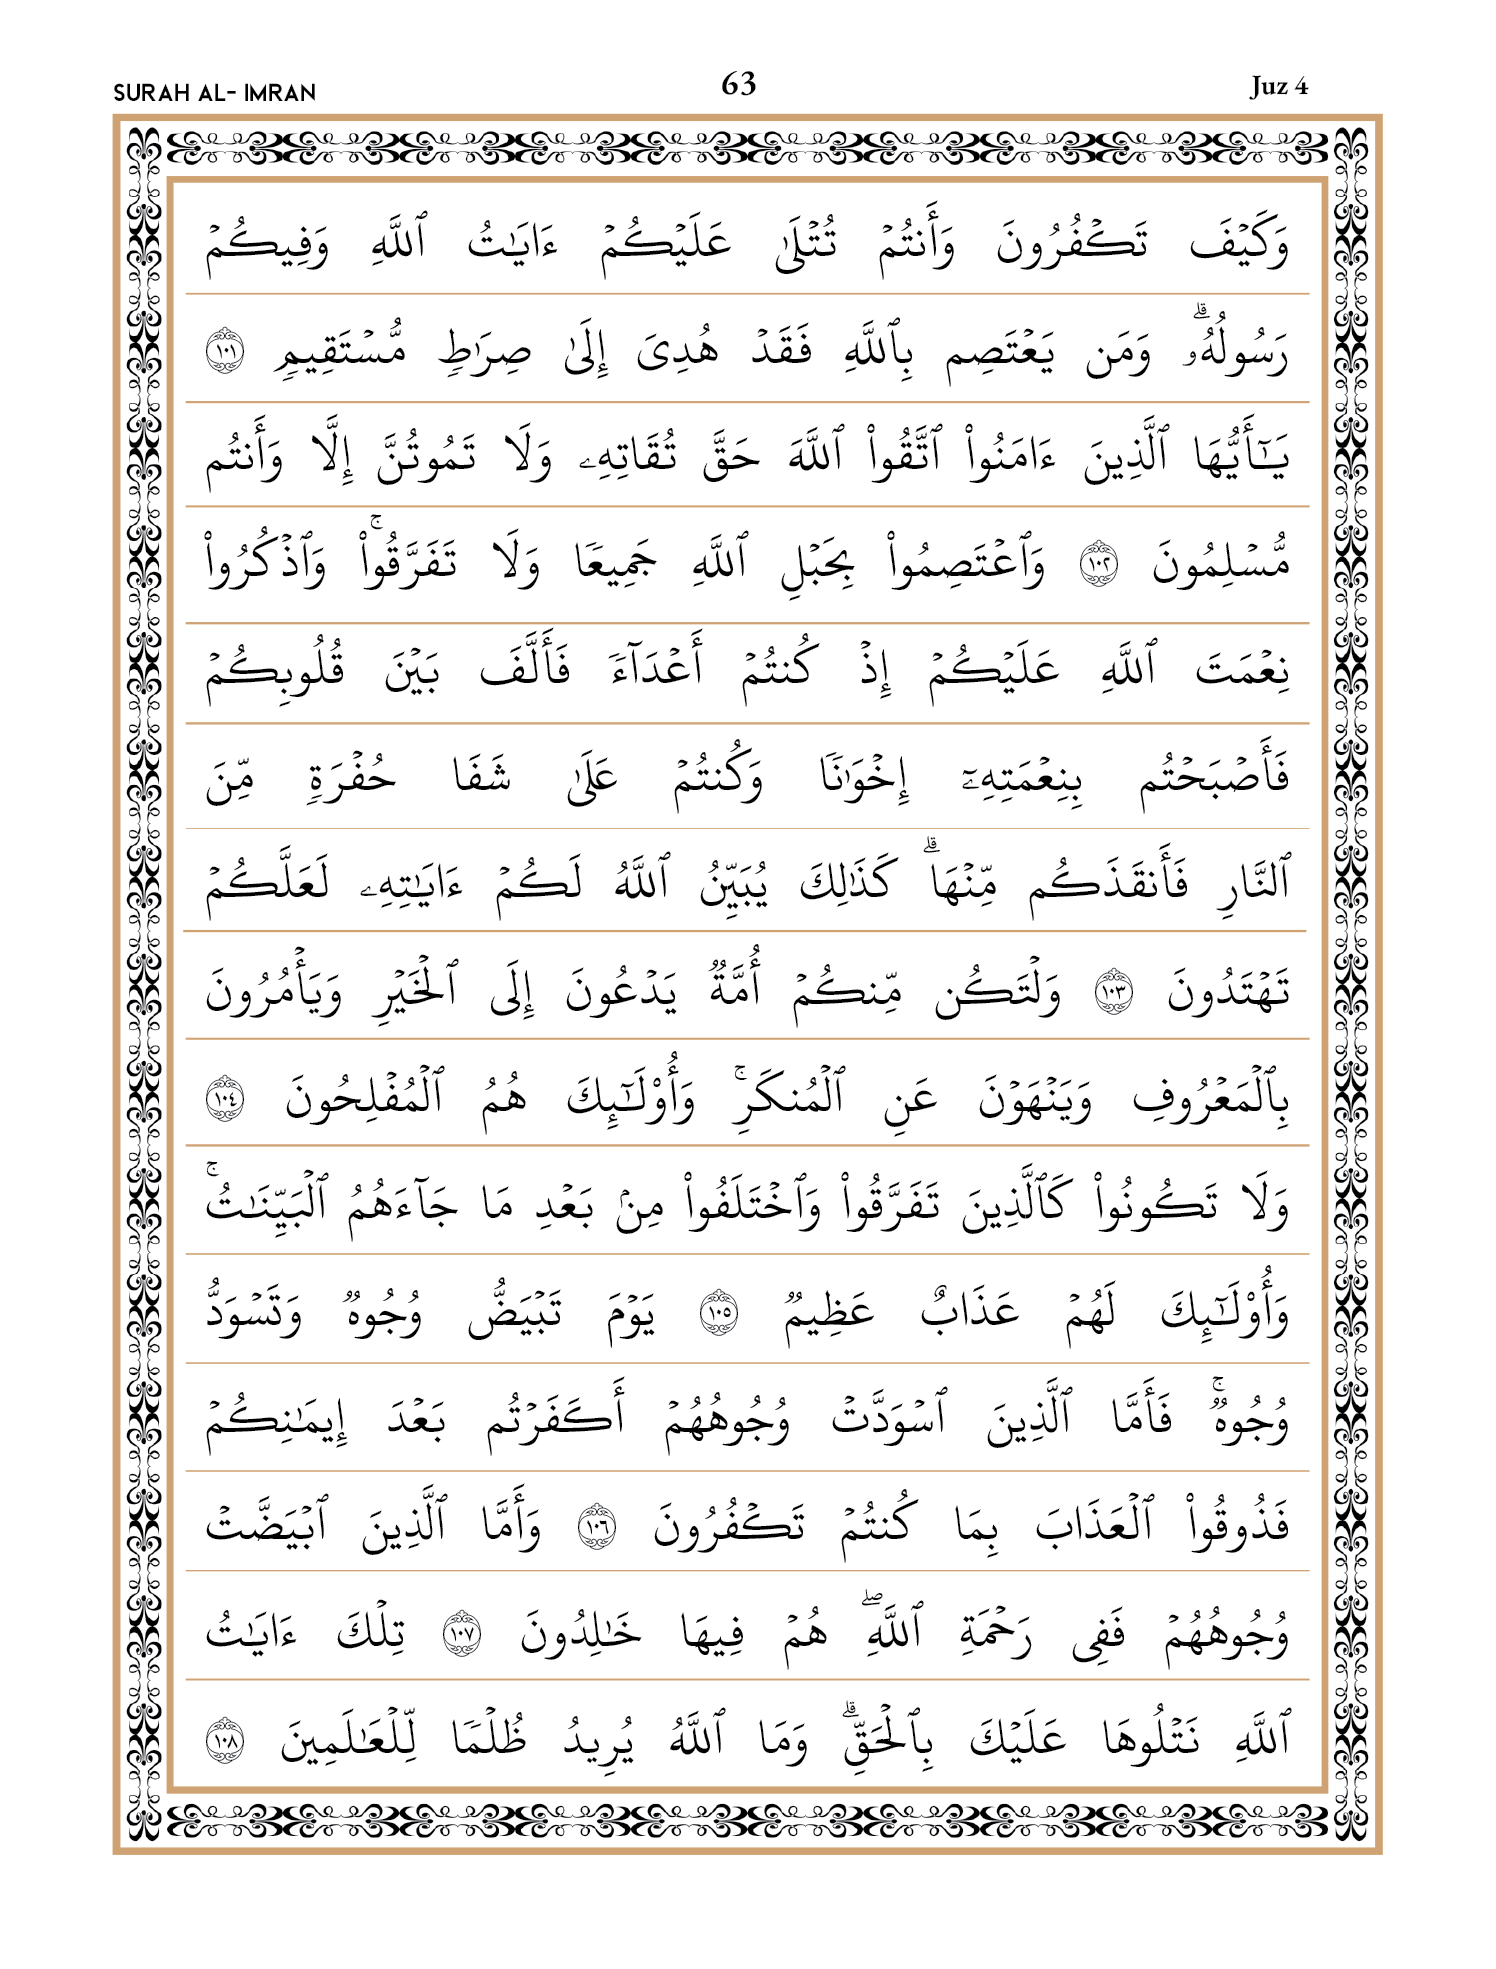 SURAH AL- IMRAN 63 Juz 4
وَكَيۡفَ تَكۡفُرُونَ وَأَنتُمۡ تُتۡلَىٰ عَلَيۡكُمۡ ءَايَٰتُ ٱللَّهِ وَفِيكُمۡ
رَسُولُهُۥۗ وَمَن يَعۡتَصِم بِٱللَّهِ فَقَدۡ هُدِيَ إِلَىٰ صِرَٰطٖ مُّسۡتَقِيمٖ ١٠١
يَٰٓأَيُّهَا ٱلَّذِينَ ءَامَنُواْ ٱتَّقُواْ ٱللَّهَ حَقَّ تُقَاتِهِۦ وَلَا تَمُوتُنَّ إِلَّا وَأَنتُم
مُّسۡلِمُونَ ١٠٢ وَٱعۡتَصِمُواْ بِحَبۡلِ ٱللَّهِ جَمِيعٗا وَلَا تَفَرَّقُواْۚ وَٱذۡكُرُواْ
نِعۡمَتَ ٱللَّهِ عَلَيۡكُمۡ إِذۡ كُنتُمۡ أَعۡدَآءٗ فَأَلَّفَ بَيۡنَ قُلُوبِكُمۡ
فَأَصۡبَحۡتُم بِنِعۡمَتِهِۦٓ إِخۡوَٰنٗا وَكُنتُمۡ عَلَىٰ شَفَا حُفۡرَةٖ مِّنَ
ٱلنَّارِ فَأَنقَذَكُم مِّنۡهَاۗ كَذَٰلِكَ يُبَيِّنُ ٱللَّهُ لَكُمۡ ءَايَٰتِهِۦ لَعَلَّكُمۡ
تَهۡتَدُونَ ١٠٣ وَلۡتَكُن مِّنكُمۡ أُمَّةٞ يَدۡعُونَ إِلَى ٱلۡخَيۡرِ وَيَأۡمُرُونَ
بِٱلۡمَعۡرُوفِ وَيَنۡهَوۡنَ عَنِ ٱلۡمُنكَرِۚ وَأُوْلَٰٓئِكَ هُمُ ٱلۡمُفۡلِحُونَ ١٠٤
وَلَا تَكُونُواْ كَٱلَّذِينَ تَفَرَّقُواْ وَٱخۡتَلَفُواْ مِنۢ بَعۡدِ مَا جَآءَهُمُ ٱلۡبَيِّنَٰتُۚ
وَأُوْلَٰٓئِكَ لَهُمۡ عَذَابٌ عَظِيمٞ ١٠٥ يَوۡمَ تَبۡيَضُّ وُجُوهٞ وَتَسۡوَدُّ
وُجُوهٞۚ فَأَمَّا ٱلَّذِينَ ٱسۡوَدَّتۡ وُجُوهُهُمۡ أَكَفَرۡتُم بَعۡدَ إِيمَٰنِكُمۡ
فَذُوقُواْ ٱلۡعَذَابَ بِمَا كُنتُمۡ تَكۡفُرُونَ ١٠٦ وَأَمَّا ٱلَّذِينَ ٱبۡيَضَّتۡ
وُجُوهُهُمۡ فَفِي رَحۡمَةِ ٱللَّهِۖ هُمۡ فِيهَا خَٰلِدُونَ ١٠٧ تِلۡكَ ءَايَٰتُ
ٱللَّهِ نَتۡلُوهَا عَلَيۡكَ بِٱلۡحَقِّۗ وَمَا ٱللَّهُ يُرِيدُ ظُلۡمٗا لِّلۡعَٰلَمِينَ ١٠٨